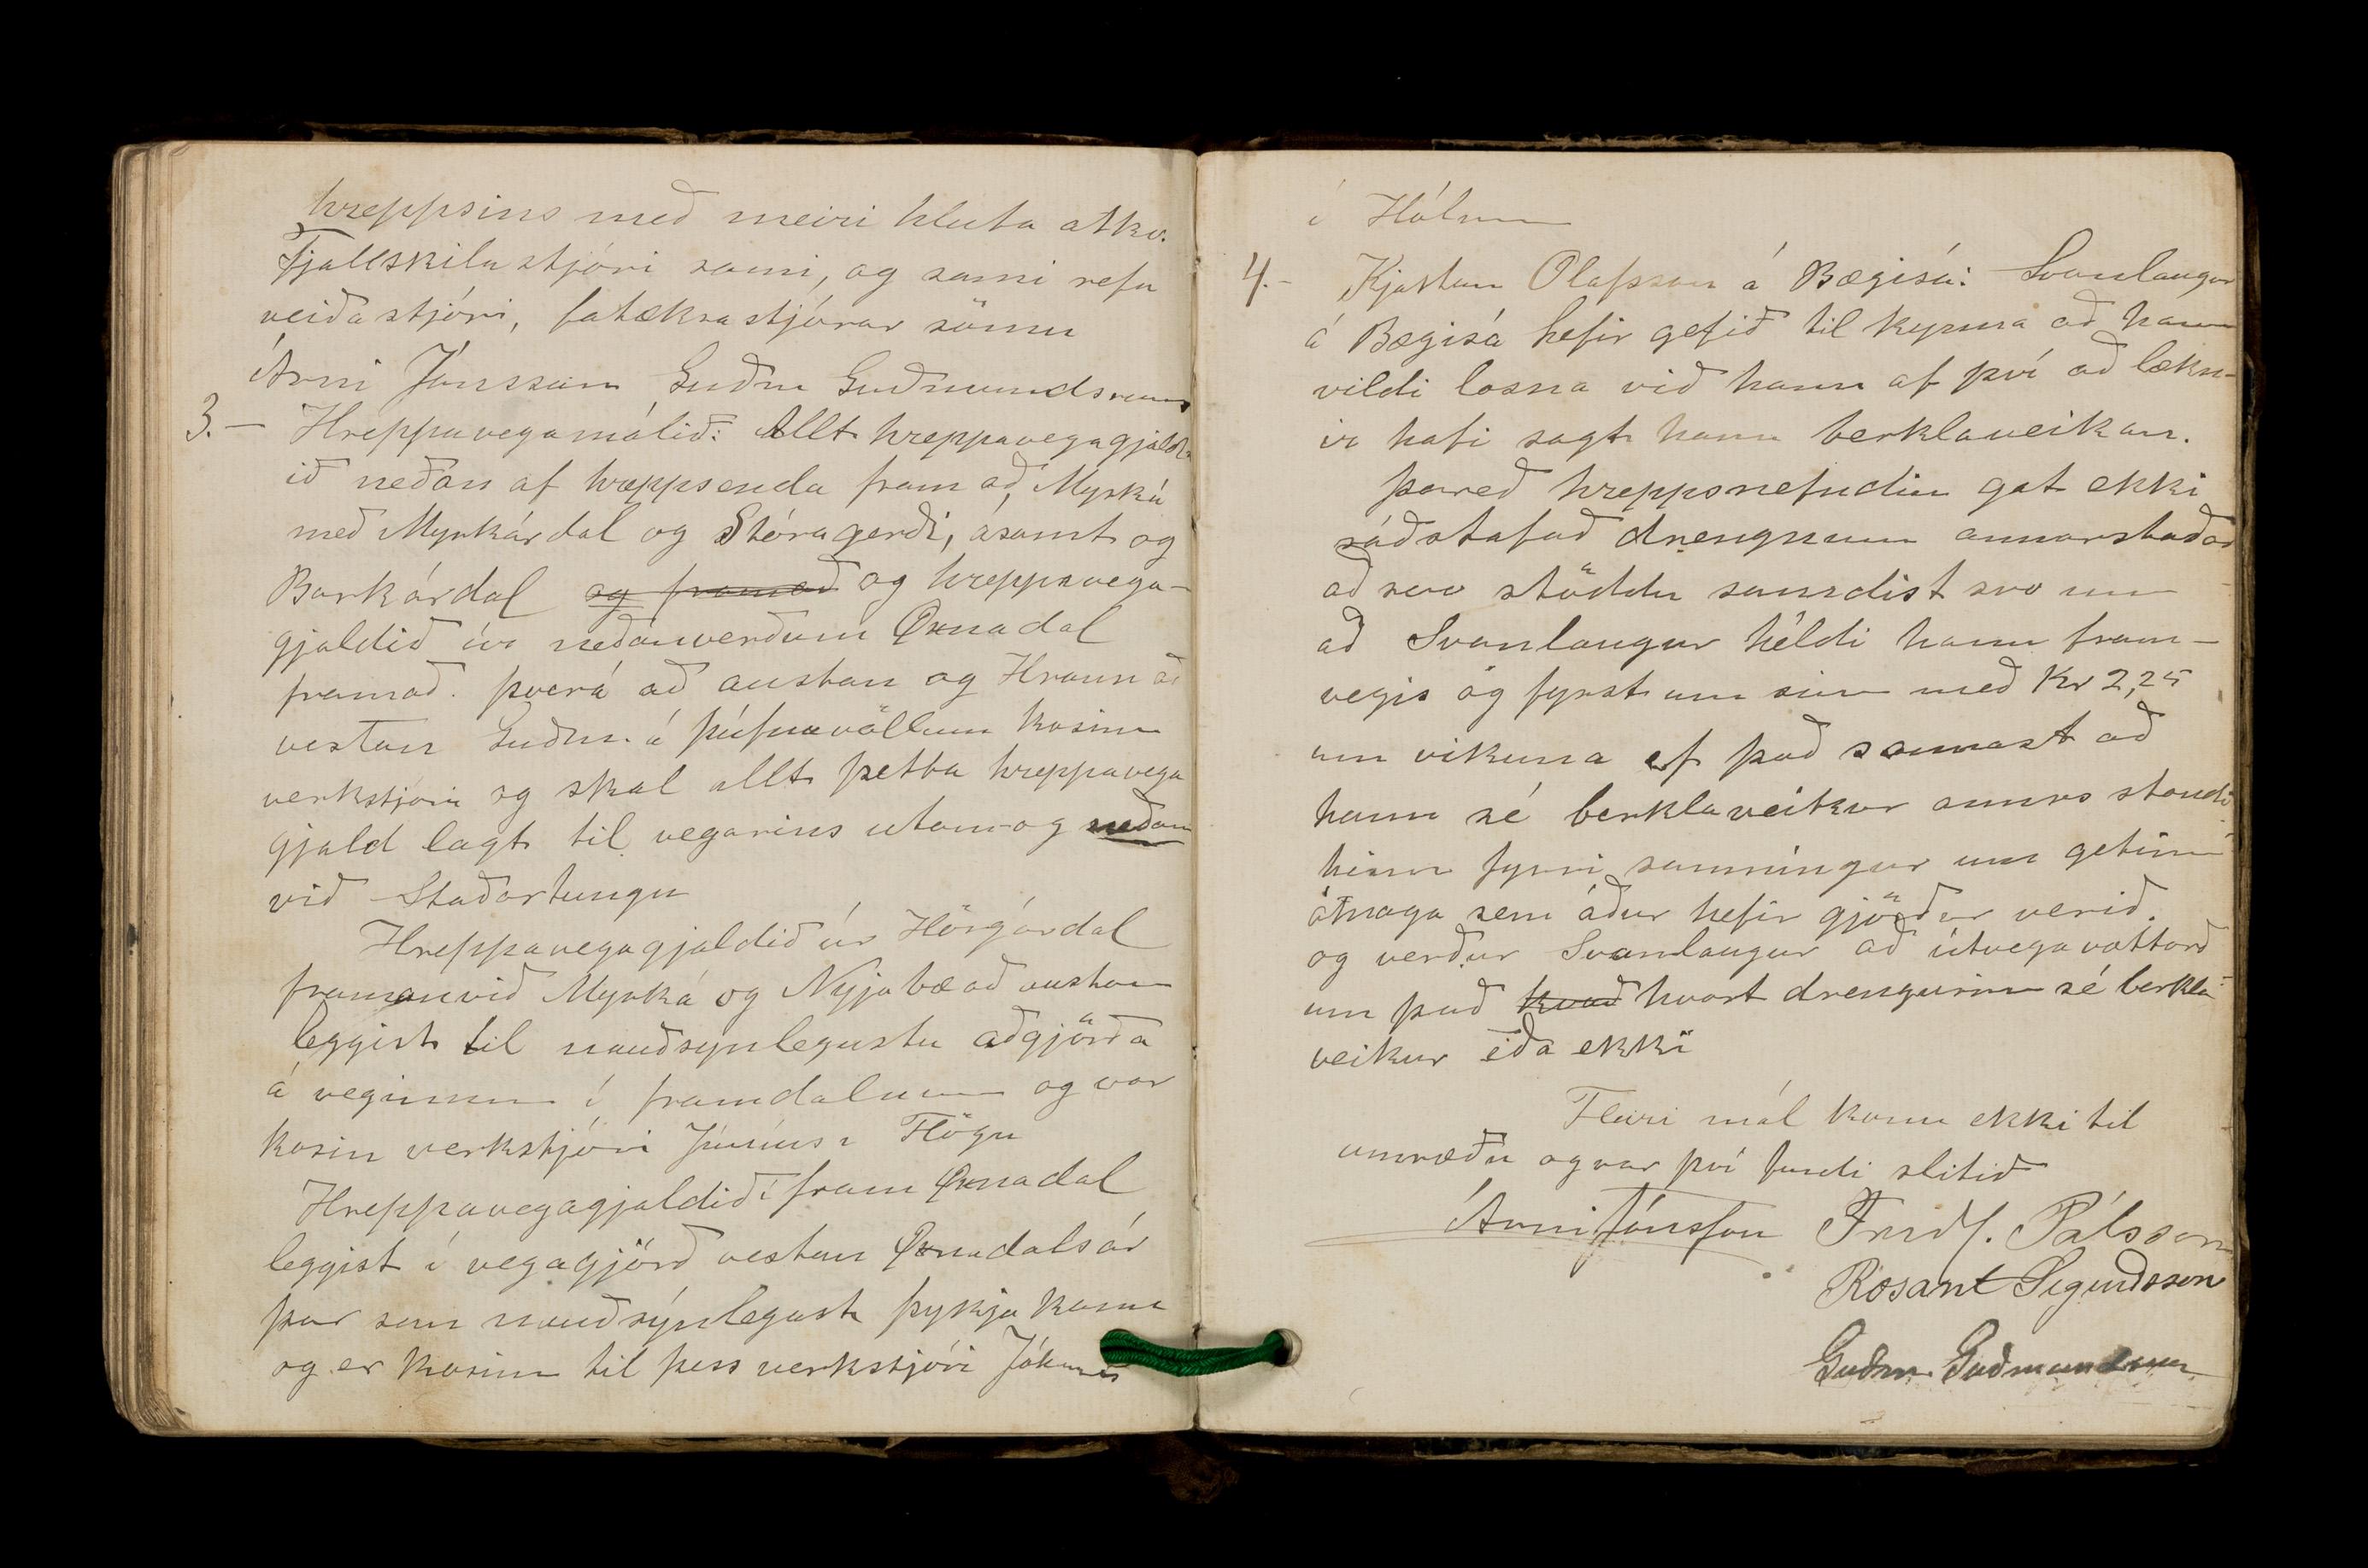 hreppsins með meiri hluta atkv.
Fjallskilastjóri sami, og sami refa
veiðastjóri, fatækrastjórar sömu
Árni Jónsson Guðm Guðmundsson
3.- Hreppavegamálið: Allt hreppavegagjald-
ið neðan af hreppsenda fram að Myrká
með Myrkárdal og Stóragerði, ásamt og
Barkárdal og framað og hreppavega-
gjaldið úr neðanverðum Öxnadal
framað. Þverá að austan og Hraun að
vestan Guðm. á Þúfnavöllum kosinn
verkstjóri og skal allt þetta hreppavega
gjald lagt til vegarins utan og neðan
við Staðartungu
Hreppavegagjaldið úr Hörgárdal
framanvið Myrká og Nýjabæ að austan
leggist til nauðsynlegustu aðgjörða
á veginum í framdalnum og var
kosin verkstjóri Júníus í Flögu
Hreppavegagjaldið í fram Öxnadal
leggist í vegagjörð vestan Öxnadalsár
þar sem nauðsýnlegast þykja koma
og er kosinn til þess verkstjóri Jóhannes
í Hólum
4.- Kjartan Olafsson á Bægisá: Svanlaugur
á Bægisá hefir gefið til kynna að hann
vildi losna við hann af því að lækn-
ir hafi sagt hann berklaveikan.
Þareð hreppsnefndin gat ekki
ráðstafað drengnum annarstaðar
að svo stöddu samdist svo um
að Svanlaugur héldi hann fram-
vegis og fyrst um sinn með Kr 2,25
um vikuna ef það sannast að
hann sé berklaveikur annrs standi
hinn fyrri samníngur um getinn
ómaga sem áður hefir gjörður verið.
og verður Svanlaugur að útvega vottorð
um það hvað hvort drengurinn sé berkla-
veikur eða ekki
Fleiri mál komu ekki til
umræðu og var því fundi slitið
Árni Jónsson Friðf. Pálsson
Rósant Sigurðsson
Guðm. Guðmundsson